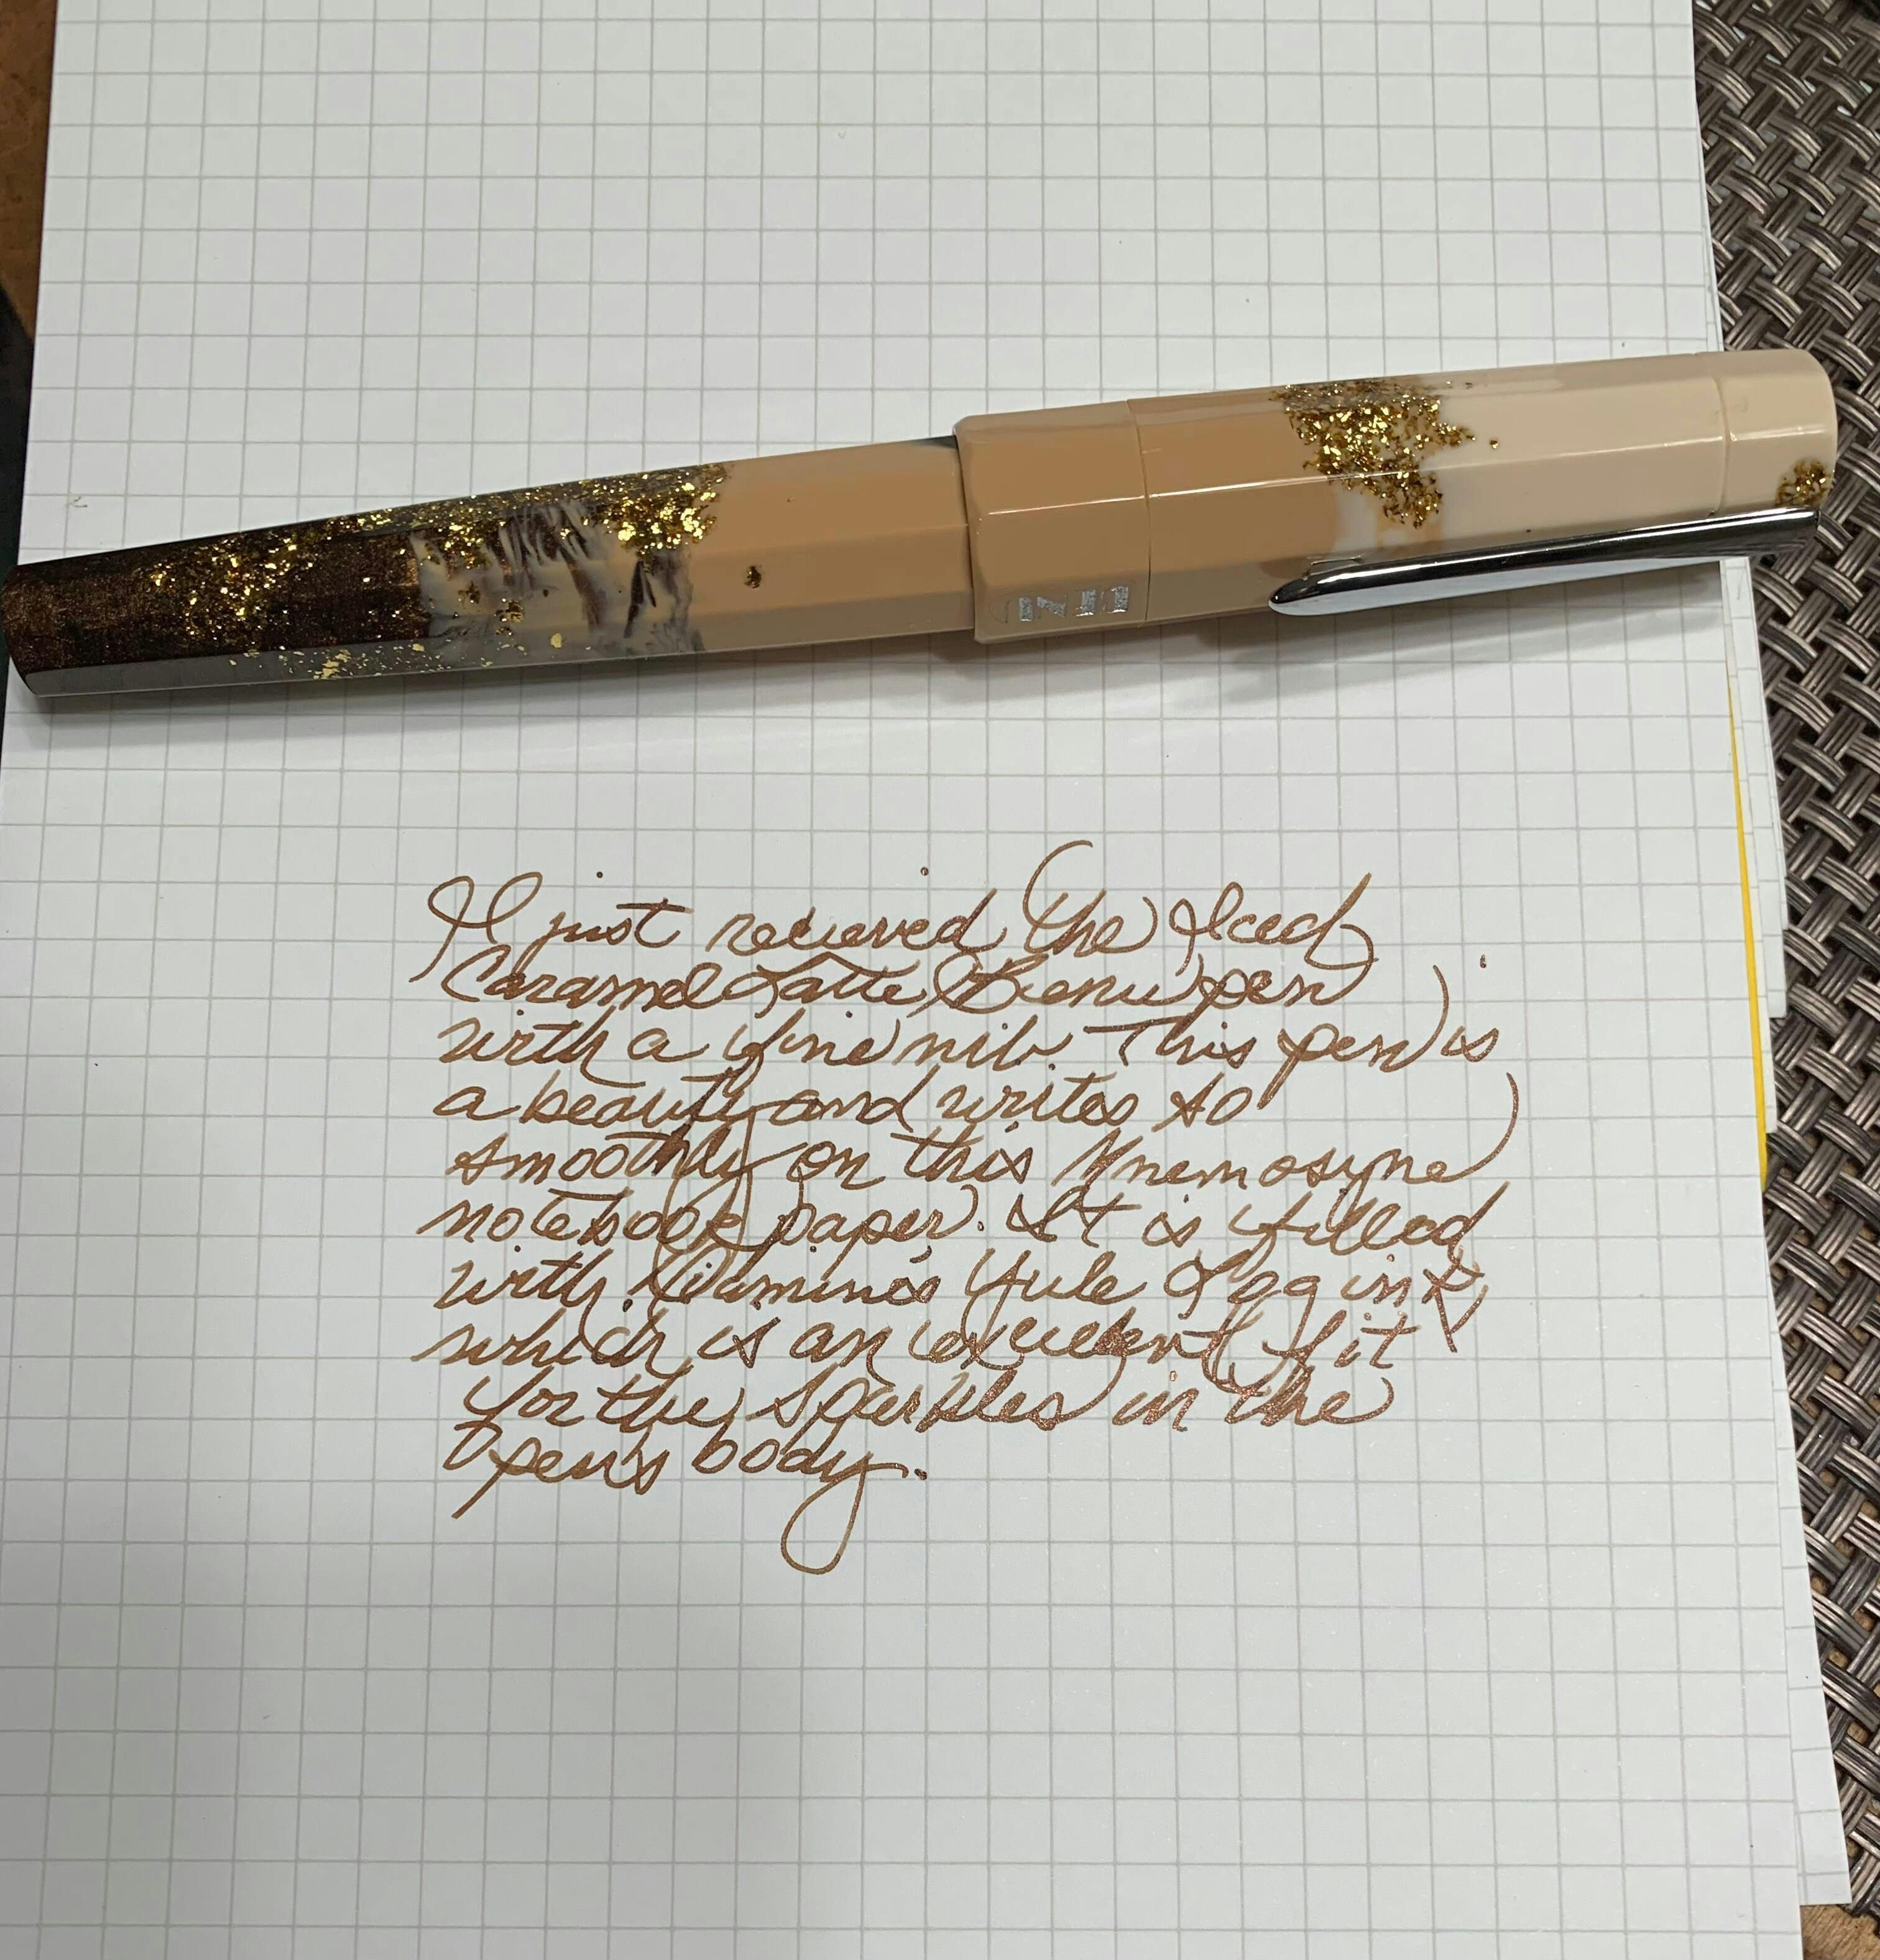 BENU
I just recieved the Iced
Caramel Latte Benu pen
with a fine nib. This pen is
a beauty and writes so
smoothly on this Mnemosyne
notebook paper. It is filled
with Diamine's Yule Log ink,
which is an excellent fit
for the sparkles in the
pen's body.